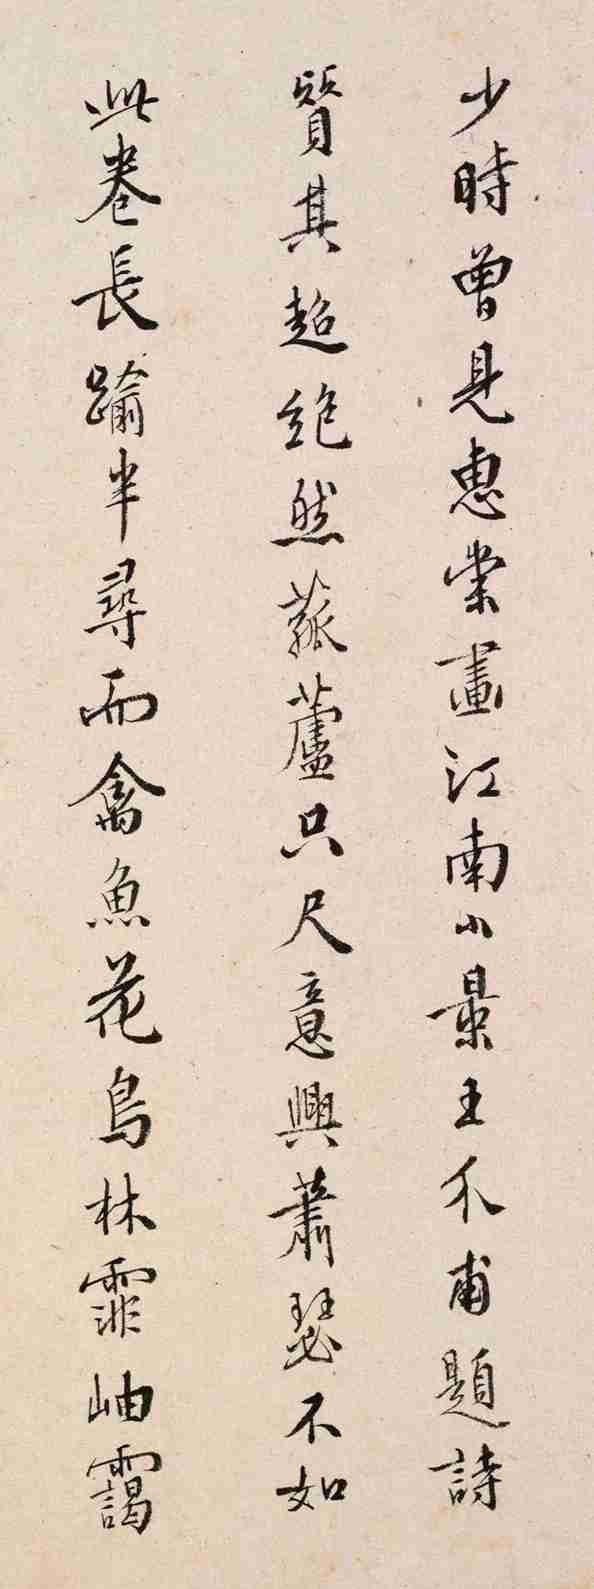 少時曾見惠崇畫江南小景王介甫題詩
賞其超絶然菰蘆只尺意興蕭瑟不如
此卷長踰半尋而禽魚花鳥林霏岫靄